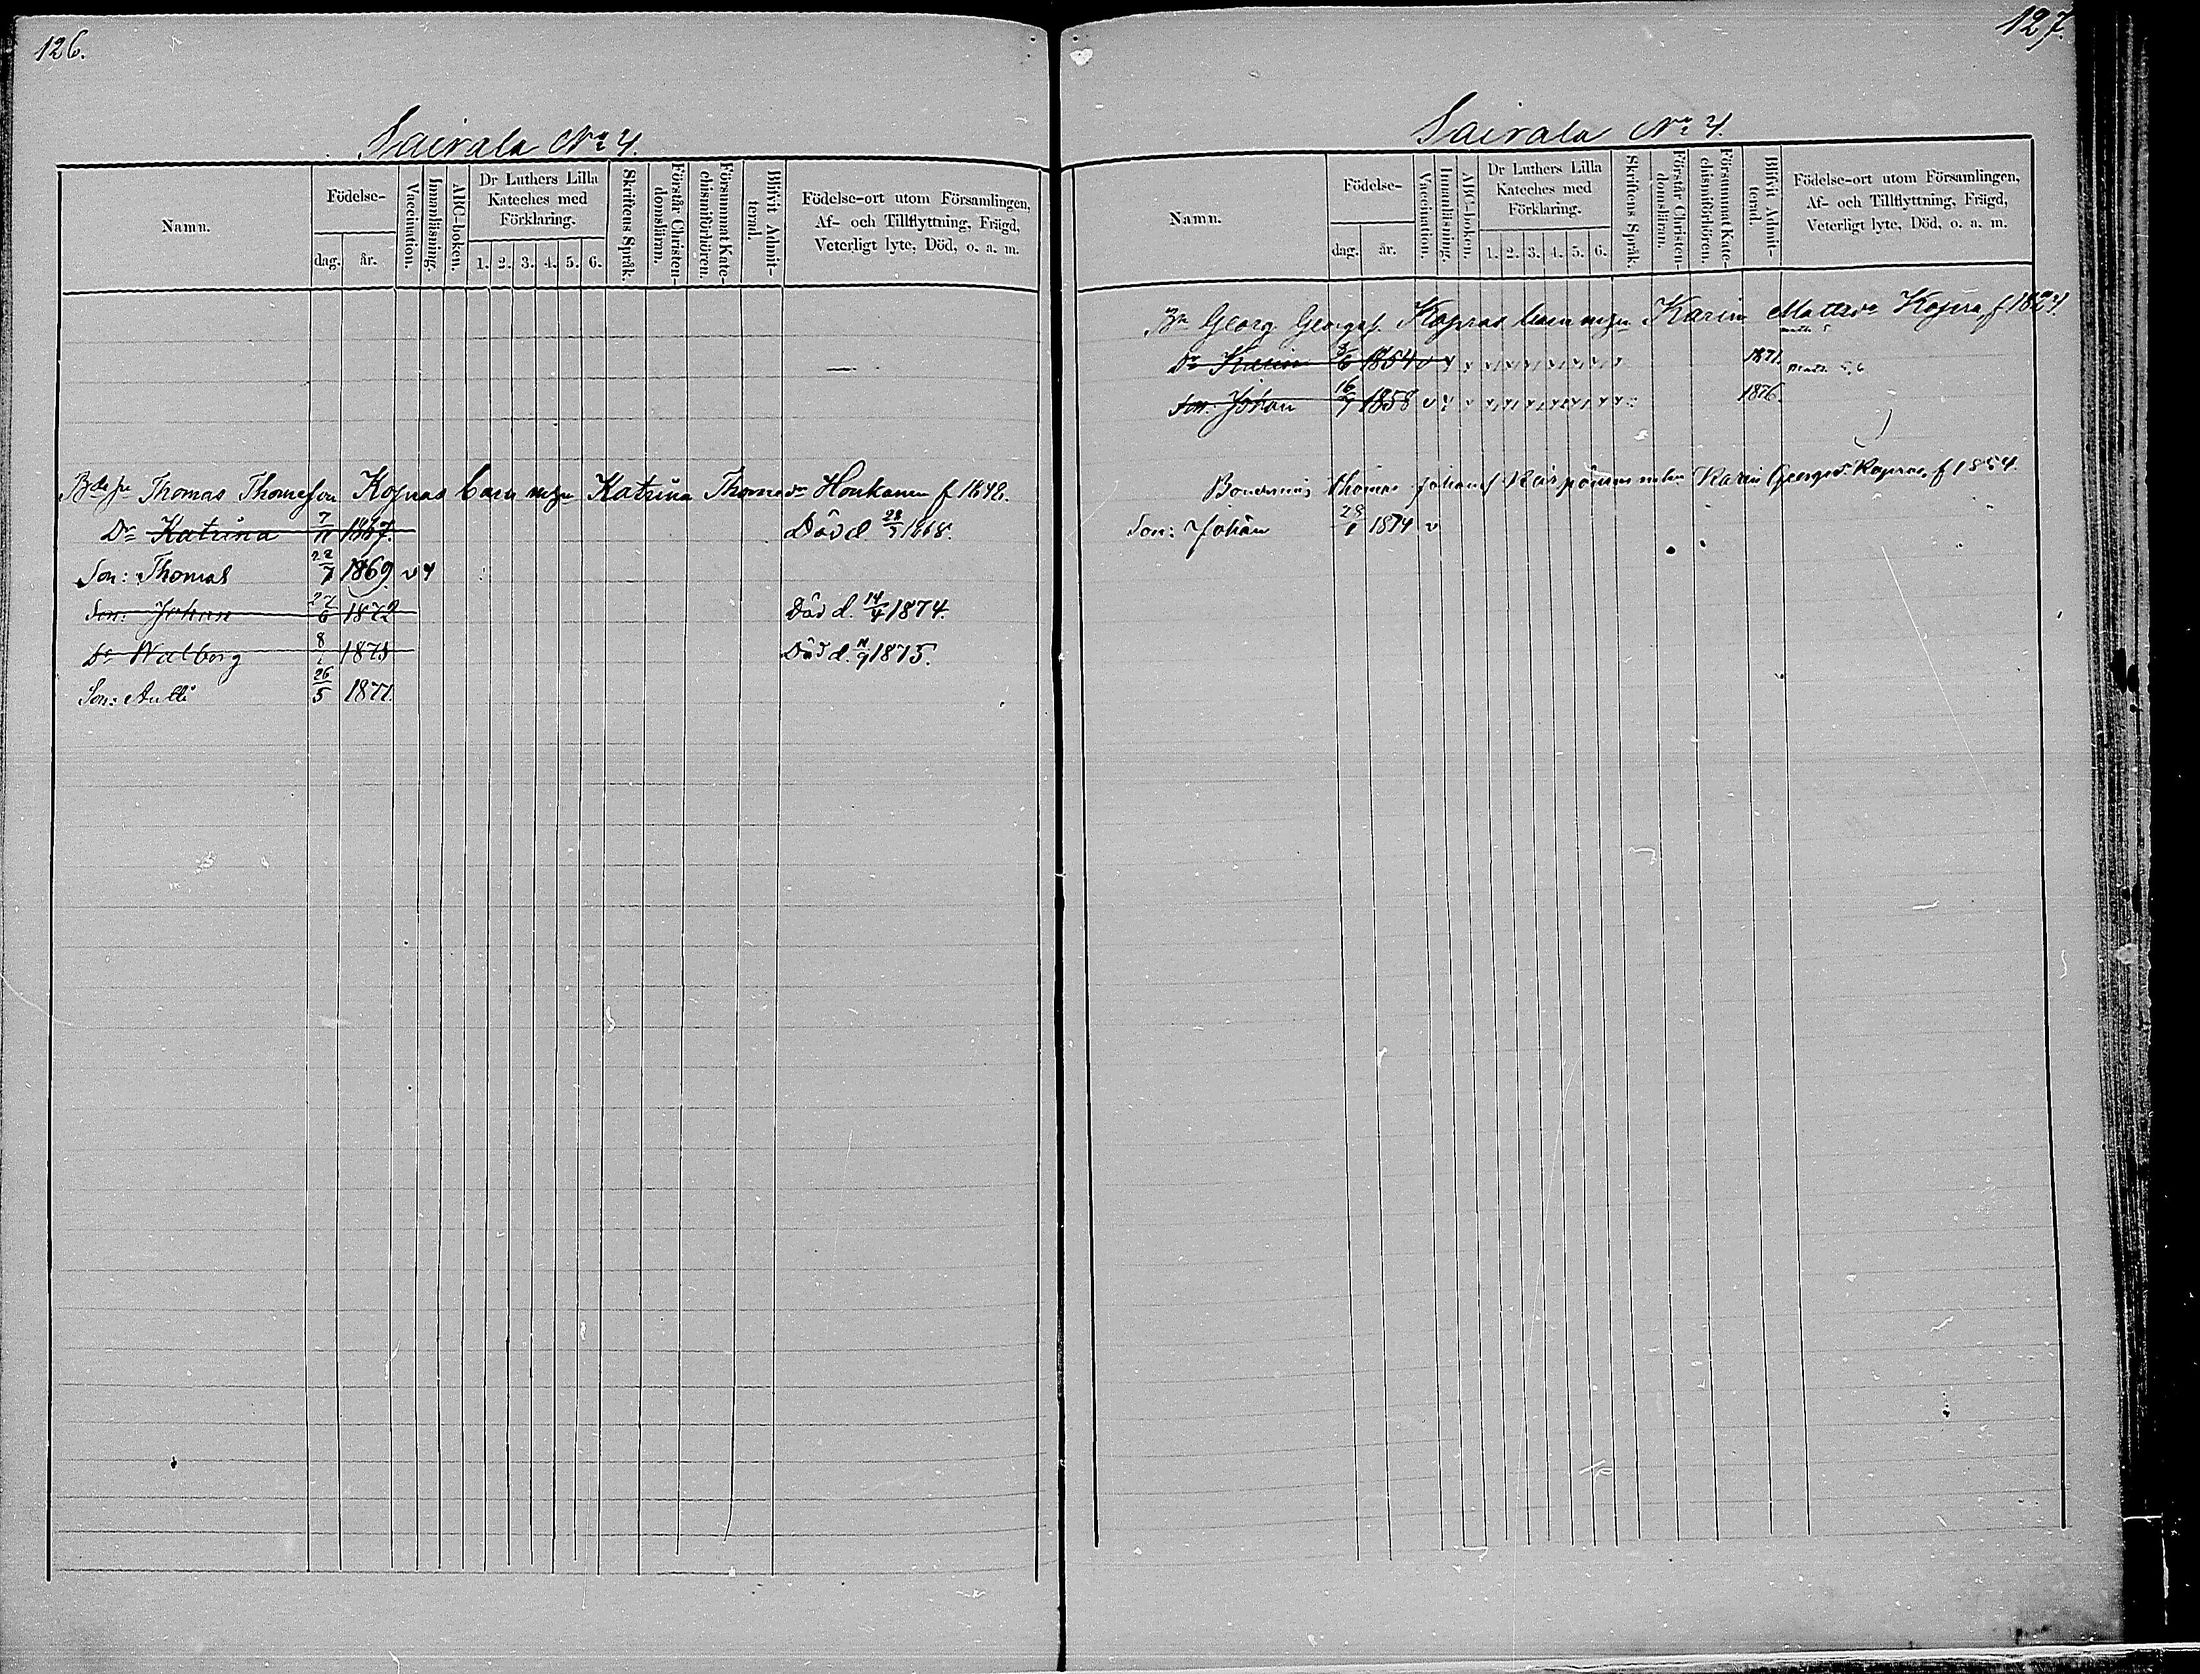 126.
Sairala No 4.
Namn.
Födelse-
dag.
år.
Vaccination.
Innanläsning.
ABC-boken.
Dr Luthers Lilla
Kateches med
Förklaring.
1. 2. 3. 4. 5. 6.
Skriftens Språk.
Förstår Christen-
domsläran.
Försummat Kate-
chismiförhören.
Blifvit Admit-
terad.
Födelse-ort utom Församlingen,
Af- och Tillflyttning, Frägd,
Veterligt lyte, Död, o. a. m.
Thomas Thomeson Kopras barn Katrina Thomedr Honkanen f 1848.
Dr Katrina 7/11 1867. Död d 28/3 1868.
Son: Thomas 22/7 1869 v
Son: Johan 27/6 1872 Död d. 14/4 1874.
Dr Walborg 8/1 1875 Död d. 11/9 1875.
Son: Antti 26/5 1877.
127.
Sairala No 4.
Namn.
Födelse-
dag.
år.
Vaccination.
Innanläsning.
ABC-boken.
Dr Luthers Lilla
Kateches med
Förklaring.
1. 2. 3. 4. 5. 6.
Skriftens Språk.
Förstår Christen-
domsläran.
Försummat Kate-
chismiförhören.
Blifvit Admit-
terad.
Födelse-ort utom Församlingen,
Af- och Tillflyttning, Frägd,
Veterligt lyte, Död, o. a. m.
Georg Georgs. Kopras barn Karin Mattsdr Kopra, f 1824.
Dr Karin 3/6 1854 v 1871.
Son: Johan 16/7 1858 v 1876.
Thomas Johans Karin Georgsdr Kopras, f 1854.
Son: Johan 28/1 1874 v